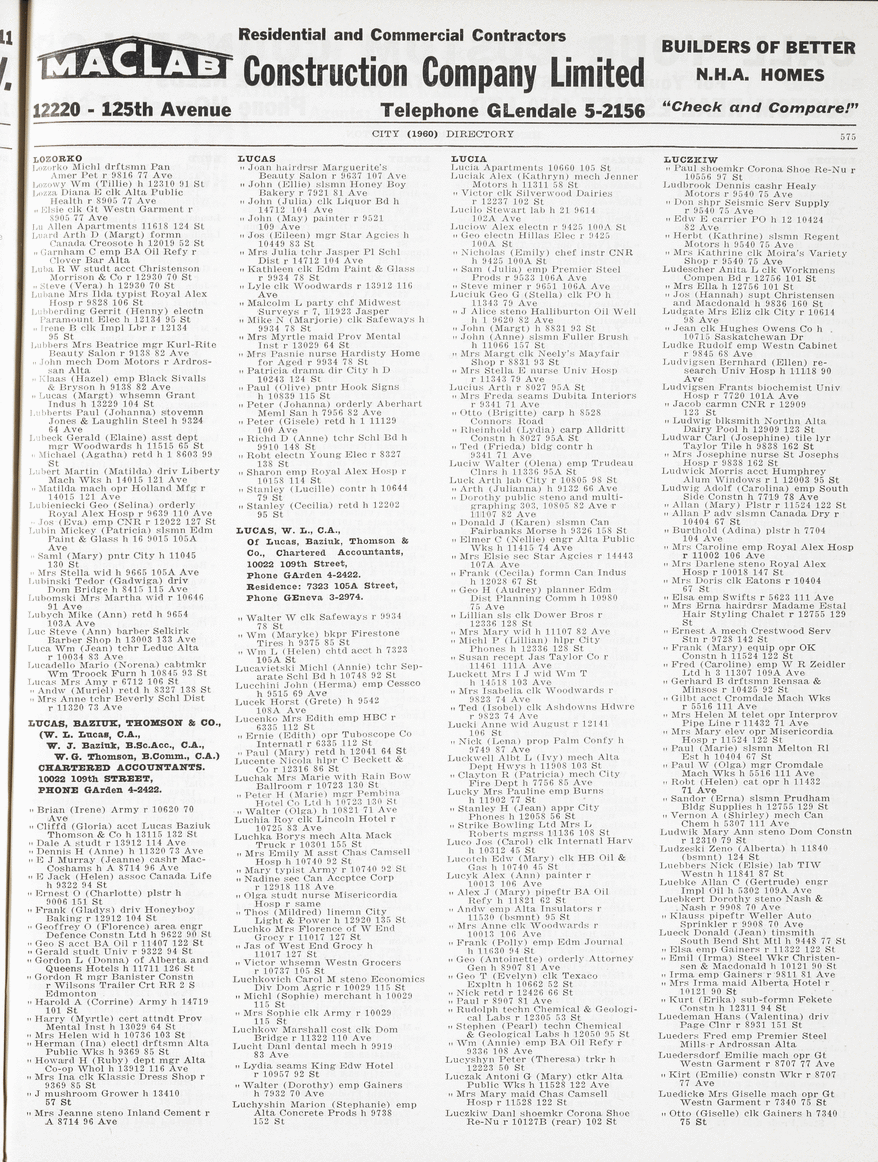 MACLAB
Residential and Commercial Contractors
Construction Company Limited
12220 - 125th Avenue
Telephone GLendale 5-2156
BUILDERS OF BETTER
N.H.A. HOMES
"Check and Compare!"
CITY (1960) DIRECTORY
575
LOZORKO
Lozorko Michl drftsmn Pan
Amer Pet r 9816 77 Ave
Lozowy Wm (Tillie) h 12310 91 St
Lozza Diana E clk Alta Public
Health r 8905 77 Ave
" Elsie clk Gt Westn Garment r
8905 77 Ave
Lu Allen Apartments 11618 124 St
Luard Arth D (Margt) formn
Canada Creosote h 12019 52 St
" Garnham C emp BA Oil Refy r
Clover Bar Alta
Luba R W studt acct Christenson
Morrison & Co r 12930 70 St
" Steve (Vera) h 12930 70 St
Lubane Mrs Ilda typist Royal Alex
Hosp r 9828 106 St
Lubberding Gerrit (Henny) electn
Paramount Elec h 12134 95 St
" Irene B clk Impl Lbr r 12134
95 St
Lubbers Mrs Beatrice mgr Kurl-Rite
Beauty Salon r 9138 82 Ave
" John mech Dom Motors r Ardros-
san Alta
" Klaas (Hazel) emp Black Sivalls
& Bryson h 9138 82 Ave
" Lucas (Margt) whsemn Grant
Indus h 13229 104 St
Lubberts Paul (Johanna) stovemn
Jones & Laughlin Steel h 9324
64 Ave
Lubeck Gerald (Elaine) asst dept
mgr Woodwards h 11515 65 St
" Michael (Agatha) retd h 1 8603 99
St
Lubert Martin (Matilda) driv Liberty
Mach Wks h 14015 121 Ave
" Matilda mach opr Holland Mfg r
14015 121 Ave
Lubieniecki Geo (Selina) orderly
Royal Alex Hosp r 9639 110 Ave
" Jos (Eva) emp CNR r 12022 127 St
Lubin Mickey (Patricia) slsmn Edm
Paint & Glass h 16 9015 105A
Ave
" Saml (Mary) pntr City h 11045
130 St
" Mrs Stella wid h 9665 105A Ave
Lubinski Tedor (Gadwiga) driv
Dom Bridge h 8415 115 Ave
Lubomski Mrs Martha wid r 10646
91 Ave
Lubych Mike (Ann) retd h 9654
103A Ave
Luc Steve (Ann) barber Selkirk
Barber Shop h 13003 133 Ave
Luca Wm (Jean) tchr Leduc Alta
r 10034 83 Ave
Lucadello Mario (Norena) cabtmkr
Wm Troock Furn h 10845 93 St
Lucas Mrs Amy r 6712 106 St
" Andw (Muriel) retd h 8327 138 St
" Mrs Anne tchr Beverly Schl Dist
r 11320 73 Ave
LUCAS, BAZIUK, THOMSON & CO.,
(W. L. Lucas, C.A.,
W. J. Baziuk, B.Sc.Acc., C.A.,
W. G. Thomson, B.Comm., C.A.)
CHARTERED ACCOUNTANTS.
10022 109th STREET,
PHONE GArden 4-2422.
" Brian (Irene) Army r 10620 70
Ave
" Cliffd (Gloria) acct Lucas Baziuk
Thomson & Co h 13115 132 St
" Dale A studt r 13912 114 Ave
" Dennis H (Anne) h 11320 73 Ave
" E J Murray (Jeanne) cashr Mac-
Coshams h A 8714 96 Ave
" E Jack (Helen) assoc Canada Life
h 9322 94 St
" Ernest O (Charlotte) plstr h
9006 151 St
" Frank (Gladys) driv Honeyboy
Baking r 12912 104 St
" Geoffrey O (Florence) area engr
Defence Constn Ltd h 9622 90 St
" Geo S acct BA Oil r 11407 122 St
" Gerald studt Univ r 9322 94 St
" Gordon L (Donna) of Alberta and
Queens Hotels h 11711 126 St
" Gordon R mgr Banister Constn
r Wilsons Trailer Crt RR 2 S
Edmonton
" Harold A (Corrine) Army h 14719
101 St
" Harry (Myrtle) cert attndt Prov
Mental Inst h 13029 64 St
" Mrs Helen wid h 10736 103 St
" Herman (Ina) electl drftsmn Alta
Public Wks h 9369 85 St
" Howard H (Ruby) dept mgr Alta
Co-op Whol h 13912 116 Ave
" Mrs Ina clk Klassic Dress Shop r
9369 85 St
" J mushroom Grower h 13410
57 St
" Mrs Jeanne steno Inland Cement r
A 8714 96 Ave
LUCAS
" Joan hairdrsr Marguerite's
Beauty Salon r 9637 107 Ave
" John (Ellie) slsmn Honey Boy
Bakery r 7921 81 Ave
" John (Julia) clk Liquor Bd h
14712 104 Ave
" John (May) painter r 9521
109 Ave
" Jos (Eileen) mgr Star Agcies h
10449 83 St
" Mrs Julia tchr Jasper Pl Schl
Dist r 14712 104 Ave
" Kathleen clk Edm Paint & Glass
r 9934 78 St
" Lyle clk Woodwards r 13912 116
Ave
" Malcolm L party chf Midwest
Surveys r 7, 11923 Jasper
" Mike N (Marjorie) clk Safeways h
9934 78 St
" Mrs Myrtle maid Prov Mental
Inst r 13029 64 St
" Mrs Pasnie nurse Hardisty Home
for Aged r 9934 78 St
" Patricia drama dir City h D
10243 124 St
" Paul (Olive) pntr Hook Signs
h 10839 115 St
" Peter (Johanna) orderly Aberhart
Meml San h 7956 82 Ave
" Peter (Gisele) retd h 1 11129
100 Ave
" Richd D (Anne) tchr Schl Bd h
9910 148 St
" Robt electn Young Elec r 8327
138 St
" Sharon emp Royal Alex Hosp r
10158 114 St
" Stanley (Lucille) contr h 10644
79 St
" Stanley (Cecilia) retd h 12202
95 St
LUCAS, W. L., C.A.,
Of Lucas, Baziuk, Thomson &
Co., Chartered Accountants,
10022 109th Street,
Phone GArden 4-2422.
Residence: 7323 105A Street,
Phone GEneva 3-2974.
" Walter W clk Safeways r 9934
78 St
" Wm (Maryke) bkpr Firestone
Tires h 9375 85 St
" Wm L (Helen) chtd acct h 7323
105A St
Lucavietski Michl (Annie) tchr Sep-
arate Schl Bd h 10748 92 St
Lucchini John (Herma) emp Cessco
h 9515 69 Ave
Lucek Horst (Grete) h 9542
108A Ave
Lucenko Mrs Edith emp HBC r
6335 112 St
" Ernie (Edith) opr Tuboscope Co
Internatl r 6335 112 St
" Paul (Mary) retd h 12041 64 St
Lucente Nicola hlpr C Beckett &
Co r 12316 86 St
Luchak Mrs Marie with Rain Bow
Ballroom r 10723 130 St
" Peter H (Marie) mgr Pembina
Hotel Co Ltd h 10723 130 St
" Walter (Olga) h 10821 71 Ave
Luchia Roy clk Lincoln Hotel r
10725 83 Ave
Luchka Borys mech Alta Mack
Truck r 10301 155 St
" Mrs Emily M asst Chas Camsell
Hosp h 10740 92 St
" Mary typist Army r 10740 92 St
" Nadine sec Can Accptce Corp
r 12918 118 Ave
" Olga studt nurse Misericordia
Hosp r same
" Thos (Mildred) linemn City
Light & Power h 12920 135 St
Luchko Mrs Florence of W End
Grocy r 11017 127 St
" Jas of West End Grocy h
11017 127 St
" Victor whsemn Westn Grocers
r 10737 105 St
Luchkovich Carol M steno Economics
Div Dom Agric r 10029 115 St
" Michl (Sophie) merchant h 10029
115 St
" Mrs Sophie clk Army r 10029
115 St
Luchkow Marshall cost clk Dom
Bridge r 11322 110 Ave
Lucht Danl dental mech h 9919
83 Ave
" Lydia seams King Edw Hotel
r 10957 92 St
" Walter (Dorothy) emp Gainers
h 7932 70 Ave
Luchyshin Marion (Stephanie) emp
Alta Concrete Prods h 9738
152 St
LUCIA
Lucia Apartments 10660 105 St
Luciak Alex (Kathryn) mech Jenner
Motors h 11311 58 St
" Victor clk Silverwood Dairies
r 12237 102 St
Lucilo Stewart lab h 21 9614
102A Ave
Luciow Alex electn r 9425 100A St
" Geo electn Hillas Elec r 9425
100A St
" Nicholas (Emily) chef instr CNR
h 9425 100A St
" Sam (Julia) emp Premier Steel
Prods r 9533 106A Ave
" Steve miner r 9651 106A Ave
Luciuk Geo G (Stella) clk PO h
11343 79 Ave
" J Alice steno Halliburton Oil Well
h 1 9620 82 Ave
" John (Margt) h 8831 93 St
" John (Anne) slsmn Fuller Brush
h 11066 157 St
" Mrs Margt clk Neely's Mayfair
Shop r 8831 93 St
" Mrs Stella E nurse Univ Hosp
r 11343 79 Ave
Lucius Arth r 8027 95A St
" Mrs Freda seams Dubita Interiors
r 9341 71 Ave
" Otto (Brigitte) carp h 8528
Connors Road
" Rheinhold (Lydia) carp Alldritt
Constn h 8027 95A St
" Ted (Frieda) bldg contr h
9341 71 Ave
Luciw Walter (Olena) emp Trudeau
Clnrs h 11336 95A St
Luck Arth lab City r 10805 98 St
" Arth (Julianna) h 9132 66 Ave
" Dorothy public steno and multi-
graphing 303, 10805 82 Ave r
11107 82 Ave
" Donald J (Karen) slsmn Can
Fairbanks Morse h 9326 158 St
" Elmer C (Nellie) engr Alta Public
Wks h 11415 74 Ave
" Mrs Elsie sec Star Agcies r 14443
107A Ave
" Frank (Cecila) formn Can Indus
h 12028 67 St
" Geo H (Audrey) planner Edm
Dist Planning Comm h 10980
75 Ave
" Lillian sls clk Dower Bros r
12336 128 St
" Mrs Mary wid h 11107 82 Ave
" Michl P (Lillian) hlpr City
Phones h 12336 128 St
" Susan recept Jas Taylor Co r
11461 111A Ave
Luckett Mrs I J wid Wm T
h 14518 103 Ave
" Mrs Isabelia clk Woodwards r
9823 74 Ave
" Ted (Isobel) clk Ashdowns Hdwre
r 9823 74 Ave
Lucki Anne wid August r 12141
106 St
" Nick (Lena) prop Palm Confy h
9749 87 Ave
Luckwell Albt L (Ivy) mech Alta
Dept Hwys h 11908 103 St
" Clayton R (Patricia) mech City
Fire Dept h 7756 85 Ave
Lucky Mrs Pauline emp Burns
h 11902 77 St
" Stanley H (Jean) appr City
Phones h 12058 56 St
" Strike Bowling Ltd Mrs L
Roberts mgrss 11136 108 St
Luco Jos (Carol) clk Internatl Harv
h 10312 45 St
Lucotch Edw (Mary) clk HB Oil &
Gas h 10740 45 St
Lucyk Alex (Ann) painter r
10013 106 Ave
" Alex J (Mary) pipeftr BA Oil
Refy h 11821 62 St
" Andw emp Alta Insulators r
11530 (bsmnt) 95 St
" Mrs Anne clk Woodwards r
10013 106 Ave
" Frank (Polly) emp Edm Journal
h 11630 94 St
" Geo (Antoinette) orderly Attorney
Gen h 8907 81 Ave
" Geo T (Evelyn) clk Texaco
Expltn h 10662 52 St
" Nick retd r 12426 66 St
" Paul r 8907 81 Ave
" Rudolph techn Chemical & Geologi-
cal Labs r 12305 53 St
" Stephen (Pearl) techn Chemical
& Geological Labs h 12050 95 St
" Wm (Annie) emp BA Oil Refy r
9336 108 Ave
Lucyshyn Peter (Theresa) trkr h
12223 50 St
Luczak Antoni G (Mary) ctkr Alta
Public Wks h 11528 122 Ave
" Mrs Mary maid Chas Camsell
Hosp r 11528 122 St
Luczkiw Danl shoemkr Corona Shoe
Re-Nu r 10127B (rear) 102 St
LUCZKIW
" Paul shoemkr Corona Shoe Re-Nu r
10556 97 St
Ludbrook Dennis cashr Healy
Motors r 9540 75 Ave
" Don shpr Seismic Serv Supply
r 9540 75 Ave
" Edw E carrier PO h 12 10424
82 Ave
" Herbt (Kathrine) slsmn Regent
Motors h 9540 75 Ave
" Mrs Kathrine clk Moira's Variety
Shop r 9540 75 Ave
Ludescher Anita L clk Workmens
Compen Bd r 12756 101 St
" Mrs Ella h 12756 101 St
" Jos (Hannah) supt Christensen
and Macdonald h 9836 160 St
Ludgate Mrs Eliz clk City r 10614
98 Ave
" Jean clk Hughes Owens Co h
10715 Saskatchewan Dr
Ludke Rudolf emp Westn Cabinet
r 9845 68 Ave
Ludvigsen Bernhard (Ellen) re-
search Univ Hosp h 11118 90
Ave
Ludvigsen Frants biochemist Univ
Hosp r 7720 101A Ave
" Jacob carmn CNR r 12909
123 St
" Ludwig blksmith Northn Alta
Dairy Pool h 12909 123 St
Ludwar Carl (Josephine) tile lyr
Taylor Tile h 9838 162 St
" Mrs Josephine nurse St Josephs
Hosp r 9838 162 St
Ludwick Morris acct Humphrey
Alum Windows r 1 12003 95 St
Ludwig Adolf (Carolina) emp South
Side Constn h 7719 78 Ave
" Allan (Mary) Plstr r 11524 122 St
" Allan P adv slsmn Canada Dry r
10404 67 St
" Burthold (Adina) plstr h 7704
104 Ave
" Mrs Caroline emp Royal Alex Hosp
r 11002 106 Ave
" Mrs Darlene steno Royal Alex
Hosp r 10018 147 St
" Mrs Doris clk Eatons r 10404
67 St
" Elsa emp Swifts r 5623 111 Ave
" Mrs Erna hairdrsr Madame Estal
Hair Styling Chalet r 12755 129
St
" Ernest A mech Crestwood Serv
Stn r 9728 142 St
" Frank (Mary) equip opr OK
Constn h 11524 122 St
" Fred (Caroline) emp W R Zeidler
Ltd h 3 11307 109A Ave
" Gerhard B drftsmn Rensaa &
Minsos r 10425 92 St
" Gilbt acct Cromdale Mach Wks
r 5516 111 Ave
" Mrs Helen M telet opr Interprov
Pipe Line r 11432 71 Ave
" Mrs Mary elev opr Misericordia
Hosp r 11524 122 St
" Paul (Marie) slsmn Melton Rl
Est h 10404 67 St
" Paul W (Olga) mgr Cromdale
Mach Wks h 5516 111 Ave
" Robt (Helen) cat opr h 11432
71 Ave
" Sandor (Erna) slsmn Prudham
Bldg Supplies h 12755 129 St
" Vernon A (Shirley) mech Can
Chem h 5307 111 Ave
Ludwik Mary Ann steno Dom Constn
r 12310 79 St
Ludzeski Zeno (Alberta) h 11840
(bsmnt) 124 St
Luebbers Nick (Elsie) lab TIW
Westn h 11841 87 St
Luebke Allan C (Gertrude) engr
Impl Oil h 5302 109A Ave
Luebkert Dorothy steno Nash &
Nash r 9908 70 Ave
" Klauss pipeftr Weller Auto
Sprinkler r 9908 70 Ave
Lueck Donald (Jean) tinsmith
South Bend Sht Mtl h 9448 77 St
" Elsa emp Gainers r 11322 122 St
" Emil (Irma) Steel Wkr Christen-
sen & Macdonald h 10121 90 St
" Irma emp Gainers r 9811 81 Ave
" Mrs Irma maid Alberta Hotel r
10121 90 St
" Kurt (Erika) sub-formn Fekete
Constn h 12311 94 St
Luedeman Hans (Valentina) driv
Page Clnr r 8931 151 St
Lueders Fred emp Premier Steel
Mills r Ardrossan Alta
Luedersdorf Emilie mach opr Gt
Westn Garment r 8707 77 Ave
" Kirt (Emilie) constn Wkr r 8707
77 Ave
Luedicke Mrs Giselle mach opr Gt
Westn Garment r 7340 75 St
" Otto (Giselle) clk Gainers h 7340
75 St